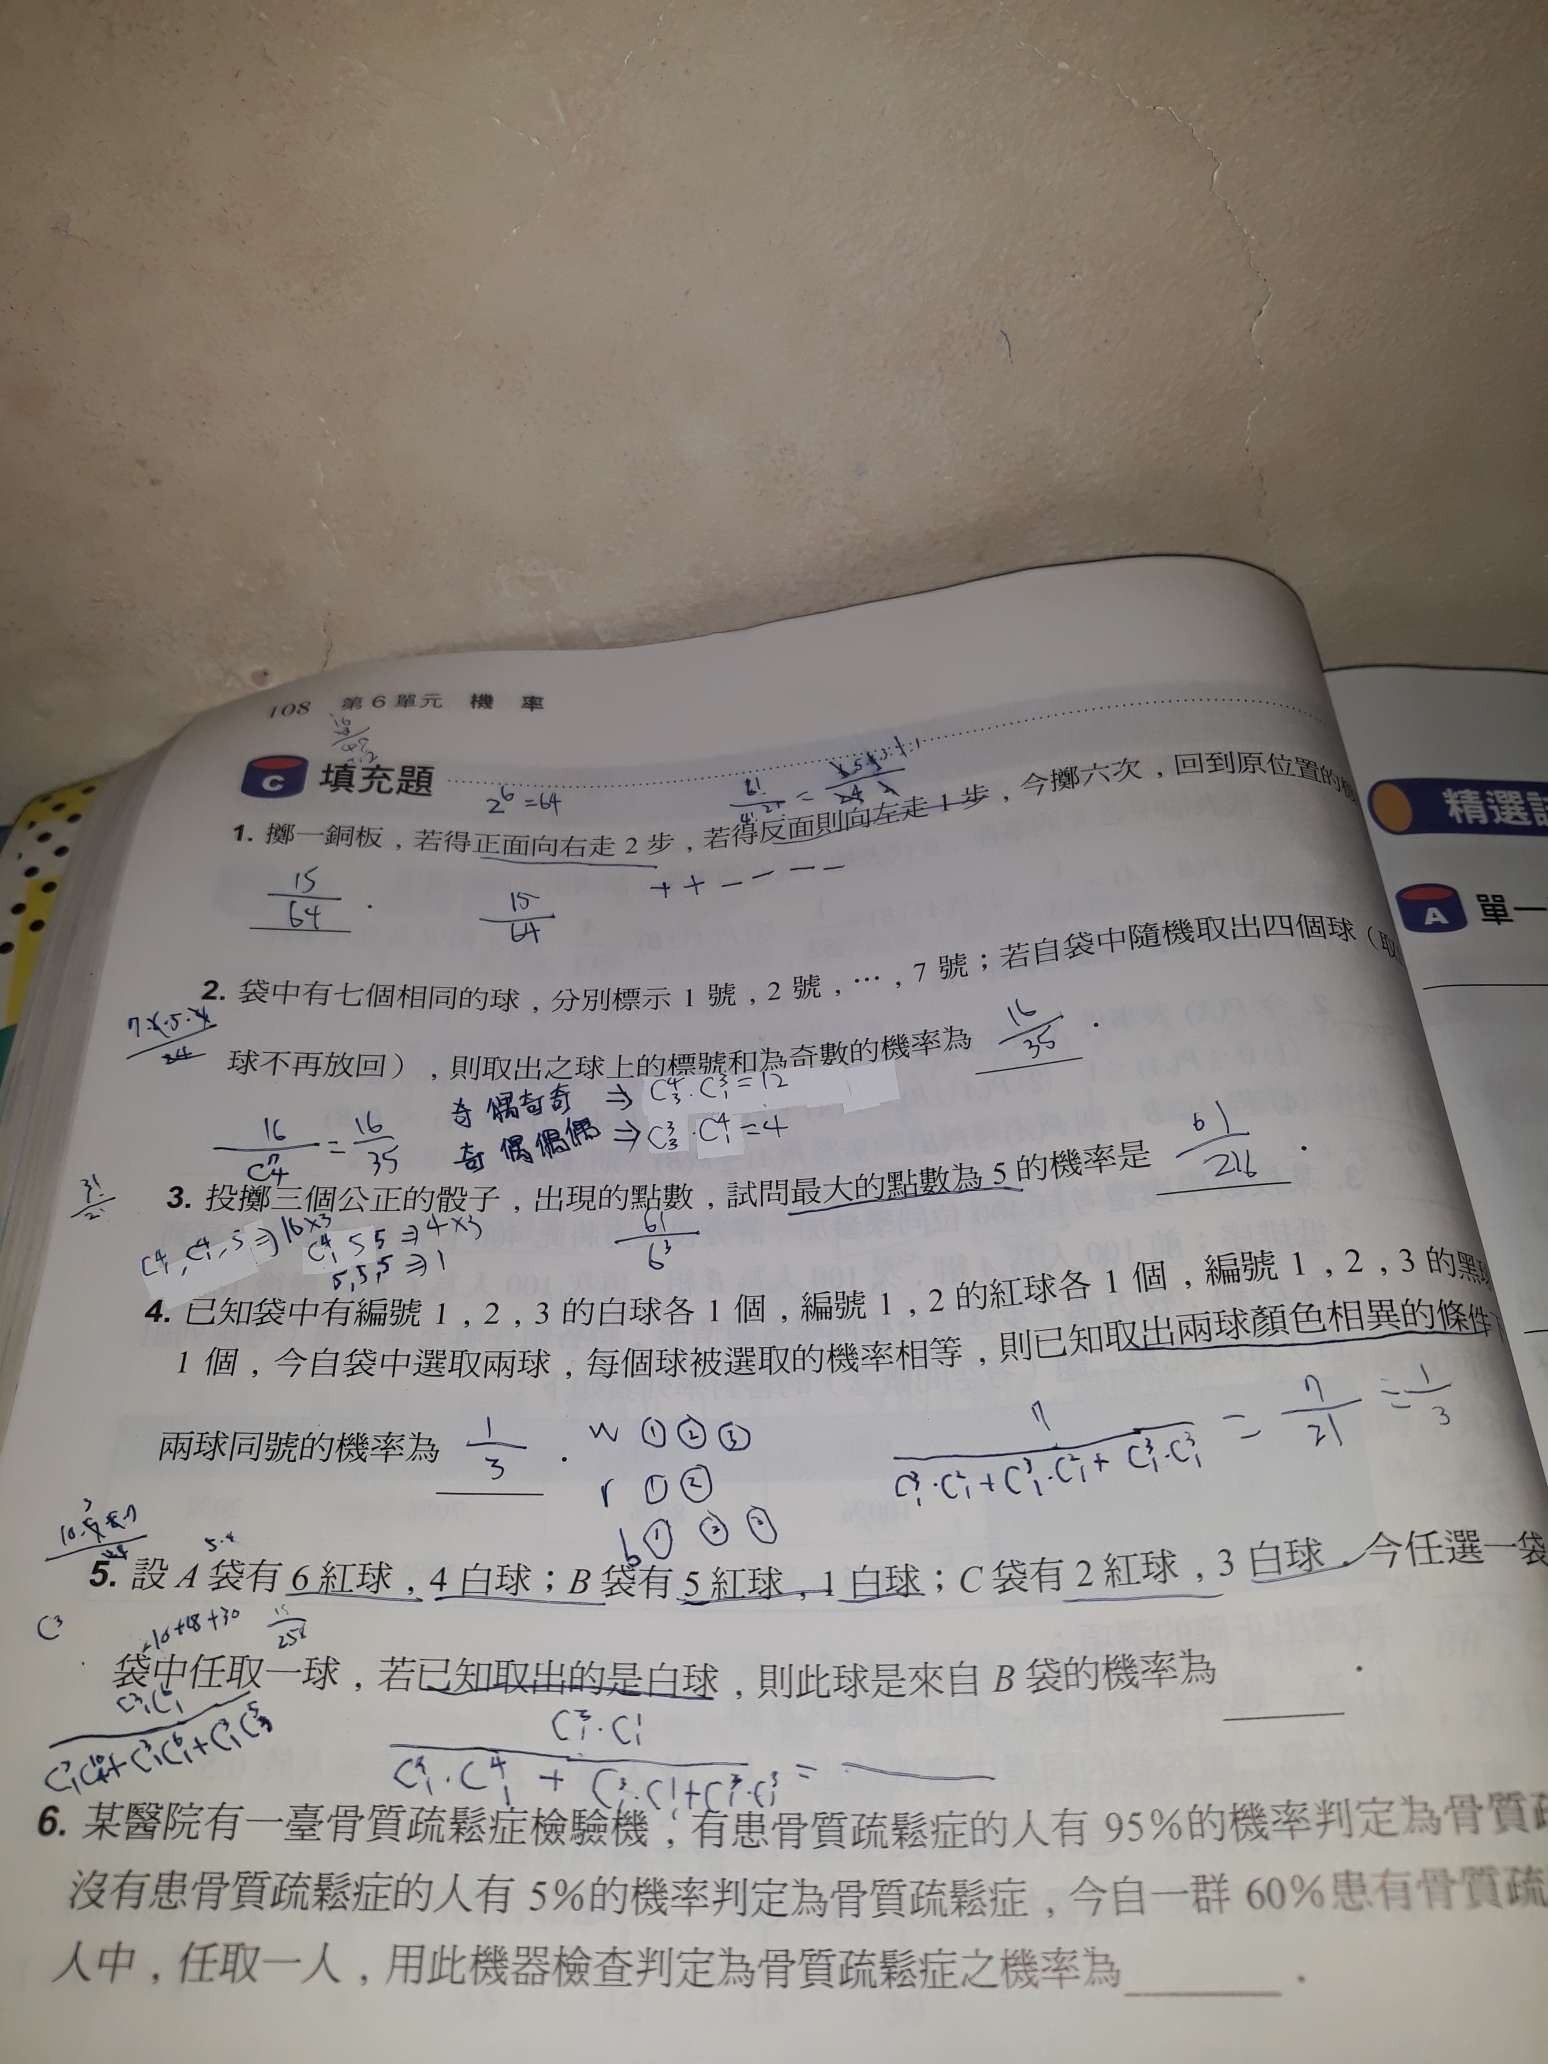 108 第6單元 機 率
C 填充題
2⁶=64
1. 擲一銅板，若得正面向右走2步，若得反面則向左走1步，今擲六次，回到原位置的
15/64 .
15/64
++----
2. 袋中有七個相同的球，分別標示1號，2號，…，7號；若自袋中隨機取出四個球（取
球不再放回），則取出之球上的標號和為奇數的機率為 16/35 .
奇偶奇奇 ⇒ C⁴₃·C³₁=12
奇偶偶偶 ⇒ C³₃·C⁴₁=4
16/C⁷₄ = 16/35
3. 投擲三個公正的骰子，出現的點數，試問最大的點數為5的機率是 61/216 .
C⁴₁, C⁴₁, 5 ⇒ 16×3
C⁴₁ 5 5 ⇒ 4×3
5,5,5 ⇒ 1
61/6³
4. 已知袋中有編號1，2，3的白球各1個，編號1，2的紅球各1個，編號1，2，3的黑
1個，今自袋中選取兩球，每個球被選取的機率相等，則已知取出兩球顏色相異的條件
兩球同號的機率為 1/3 .
w ① ② ③
r ① ②
b ① ② ③
7/(C³₁·C²₁+C³₁·C²₁+C³₁·C³₁) = 7/21 = 1/3
5. 設A袋有6紅球，4白球；B袋有5紅球，1白球；C袋有2紅球，3白球，今任選一袋
袋中任取一球，若已知取出的是白球，則此球是來自B袋的機率為 .
C³₁·C¹₁
6. 某醫院有一臺骨質疏鬆症檢驗機，有患骨質疏鬆症的人有95%的機率判定為骨質疏
沒有患骨質疏鬆症的人有5%的機率判定為骨質疏鬆症，今自一群60%患有骨質疏
人中，任取一人，用此機器檢查判定為骨質疏鬆症之機率為 .
精選試
A 單一